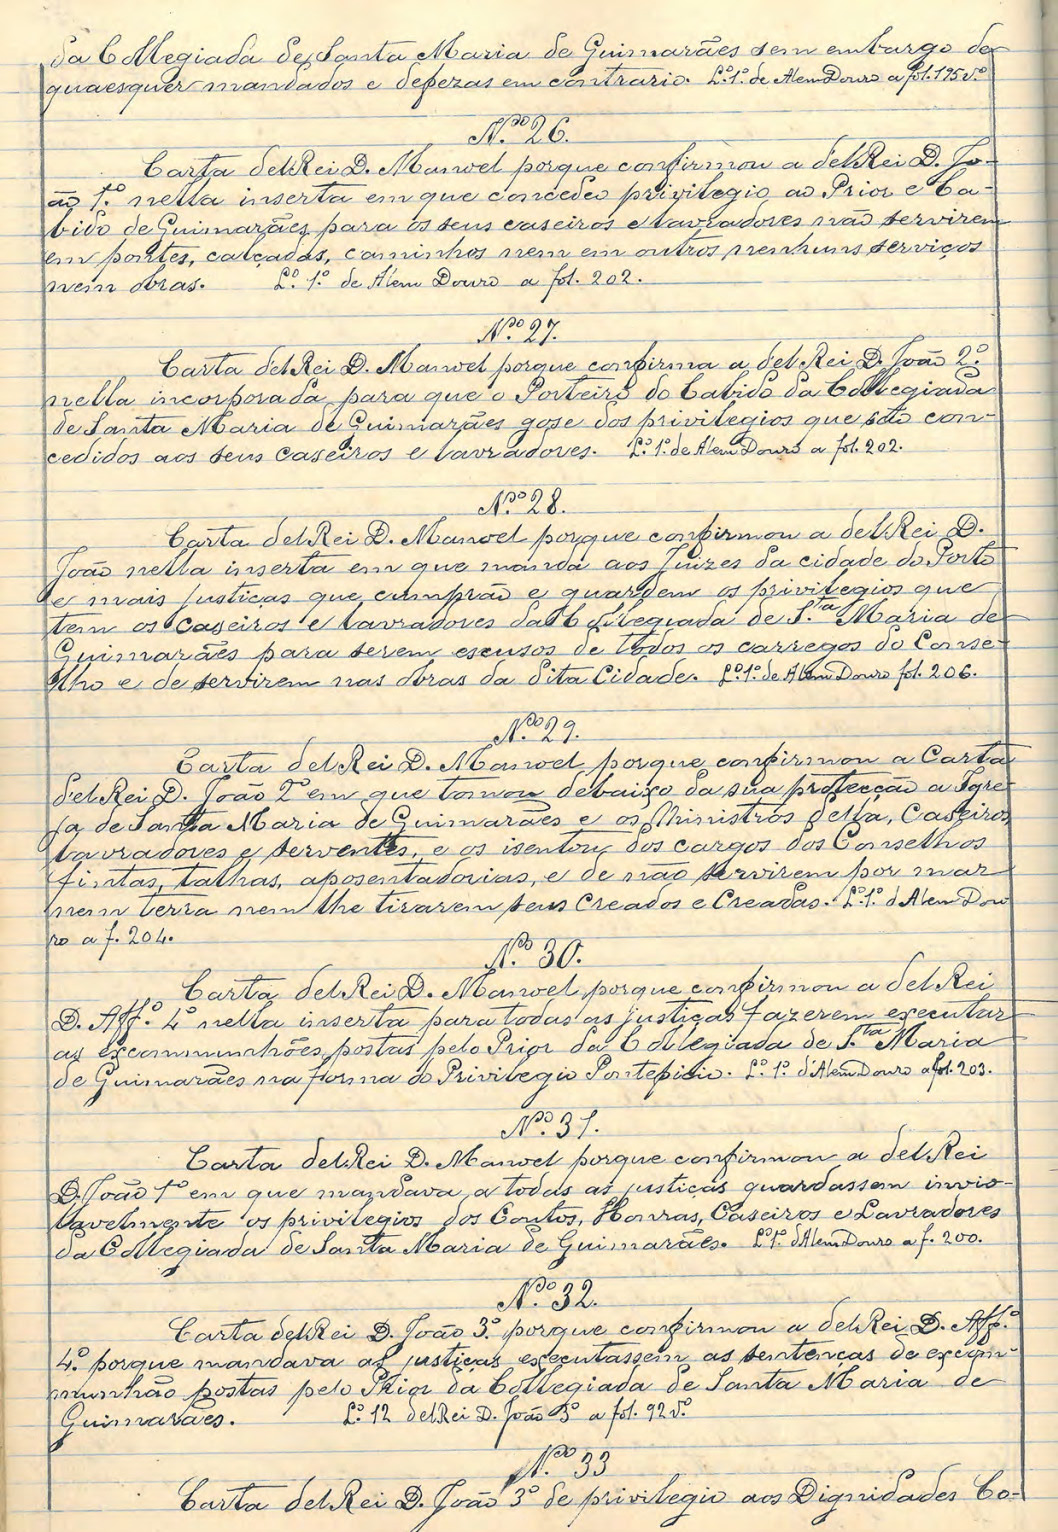 da Collegiada de Santa Maria de Guimarães sem embargo de
quaesquer mandados e defezas em contrario. L.º 1.º de Alem Douro a fol. 195 v.º
N.º 26.
Carta del Rei D. Manoel porque confirmou a del Rei D. Jo-
ão 1.º nella inserta em que concedeo privilegio ao Prior e Ca-
bido de Guimarães para os seus caseiros e lavradores não servirem
em pontes, calçadas, caminhos nem em outros nenhuns serviços
nem obras. L.º 1.º de Alem Douro a fol. 202.
N.º 27.
Carta del Rei D. Manoel porque confirma a del Rei D. João 2.º
nella incorporada para que o Porteiro do Cabido da Collegiada
de Santa Maria de Guimarães gose dos privilegios que são con-
cedidos aos seus caseiros e lavradores. L.º 1.º de Alem Douro a fol. 202.
N.º 28.
Carta del Rei D. Manoel porque confirmou a del Rei D.
João nella inserta em que manda aos Juizes da cidade do Porto
e mais justiças que cumprão e guardem os privilegios que
tem os caseiros e lavradores da Collegiada de S.ta Maria de
Guimarães para serem escusos de todos os carregos do Conse-
lho e de servirem nas obras da dita Cidade. L.º 1.º de Alem Douro fol. 206.
N.º 29.
Carta del Rei D. Manoel porque confirmou a Carta
del Rei D. João 2º em que tomou debaixo da sua protecção a Igre-
ja de Santa Maria de Guimarães e os Ministros della, Caseiros
lavradores e serventes, e os isentou dos cargos dos Conselhos
fintas, talhas, aposentadorias, e de não servirem por mar
nem terra nem lhe tirarem seus Creados e Creadas. L.º 1.º d'Alem Dou-
ro a f. 204.
N.º 30.
Carta del Rei D. Manoel porque confirmou a del Rei
D. Aff.º 4º nella inserta para todas as justiças fazerem executar
as excommunhões postas pelo Prior da Collegiada de S.ta Maria
de Guimarães na forma do Privilegio Pontificio. L.º 1.º d'Alem Douro a fol. 203.
N.º 31.
Carta del Rei D. Manoel porque confirmou a del Rei
D. João 1º em que mandava a todas as justiças guardassem invio-
lavelmente os privilegios dos Coutos, Honras, Caseiros e Lavradores
da Collegiada de Santa Maria de Guimarães. L.º 1.º d'Alem Douro a f. 200.
N.º 32.
Carta del Rei D. João 3.º porque confirmou a del Rei D. Aff.º
4.º porque mandava as justiças executassem as sentenças de excom-
munhão postas pelo Prior da Collegiada de Santa Maria de
Guimarães. L.º 12 del Rei D. João 3º a fol. 92 v.º
N.º 33
Carta del Rei D. João 3º de privilegio aos Dignidades Co-